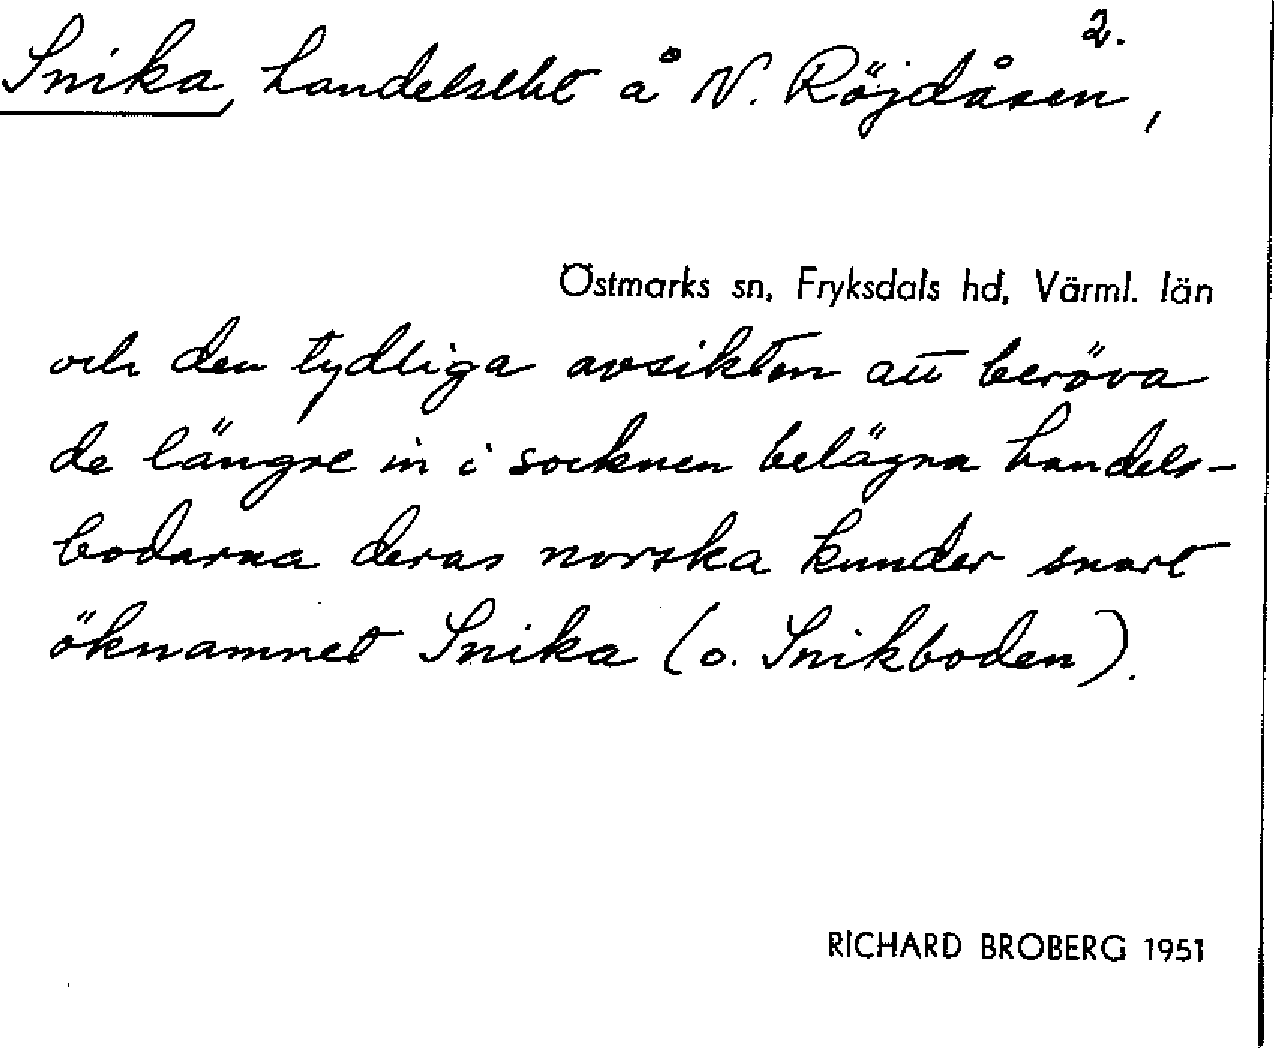 2.
Snika, handelslht å N. Röjdåsen,
Östmarks sn, Fryksdals hd, Värml. län
och den tydliga avsikten att beröva
de längre in i socknen belägna handels-
bodarna deras norska kunder snart
öknamnet Snika (o. Snikboden).
RICHARD BROBERG 1951